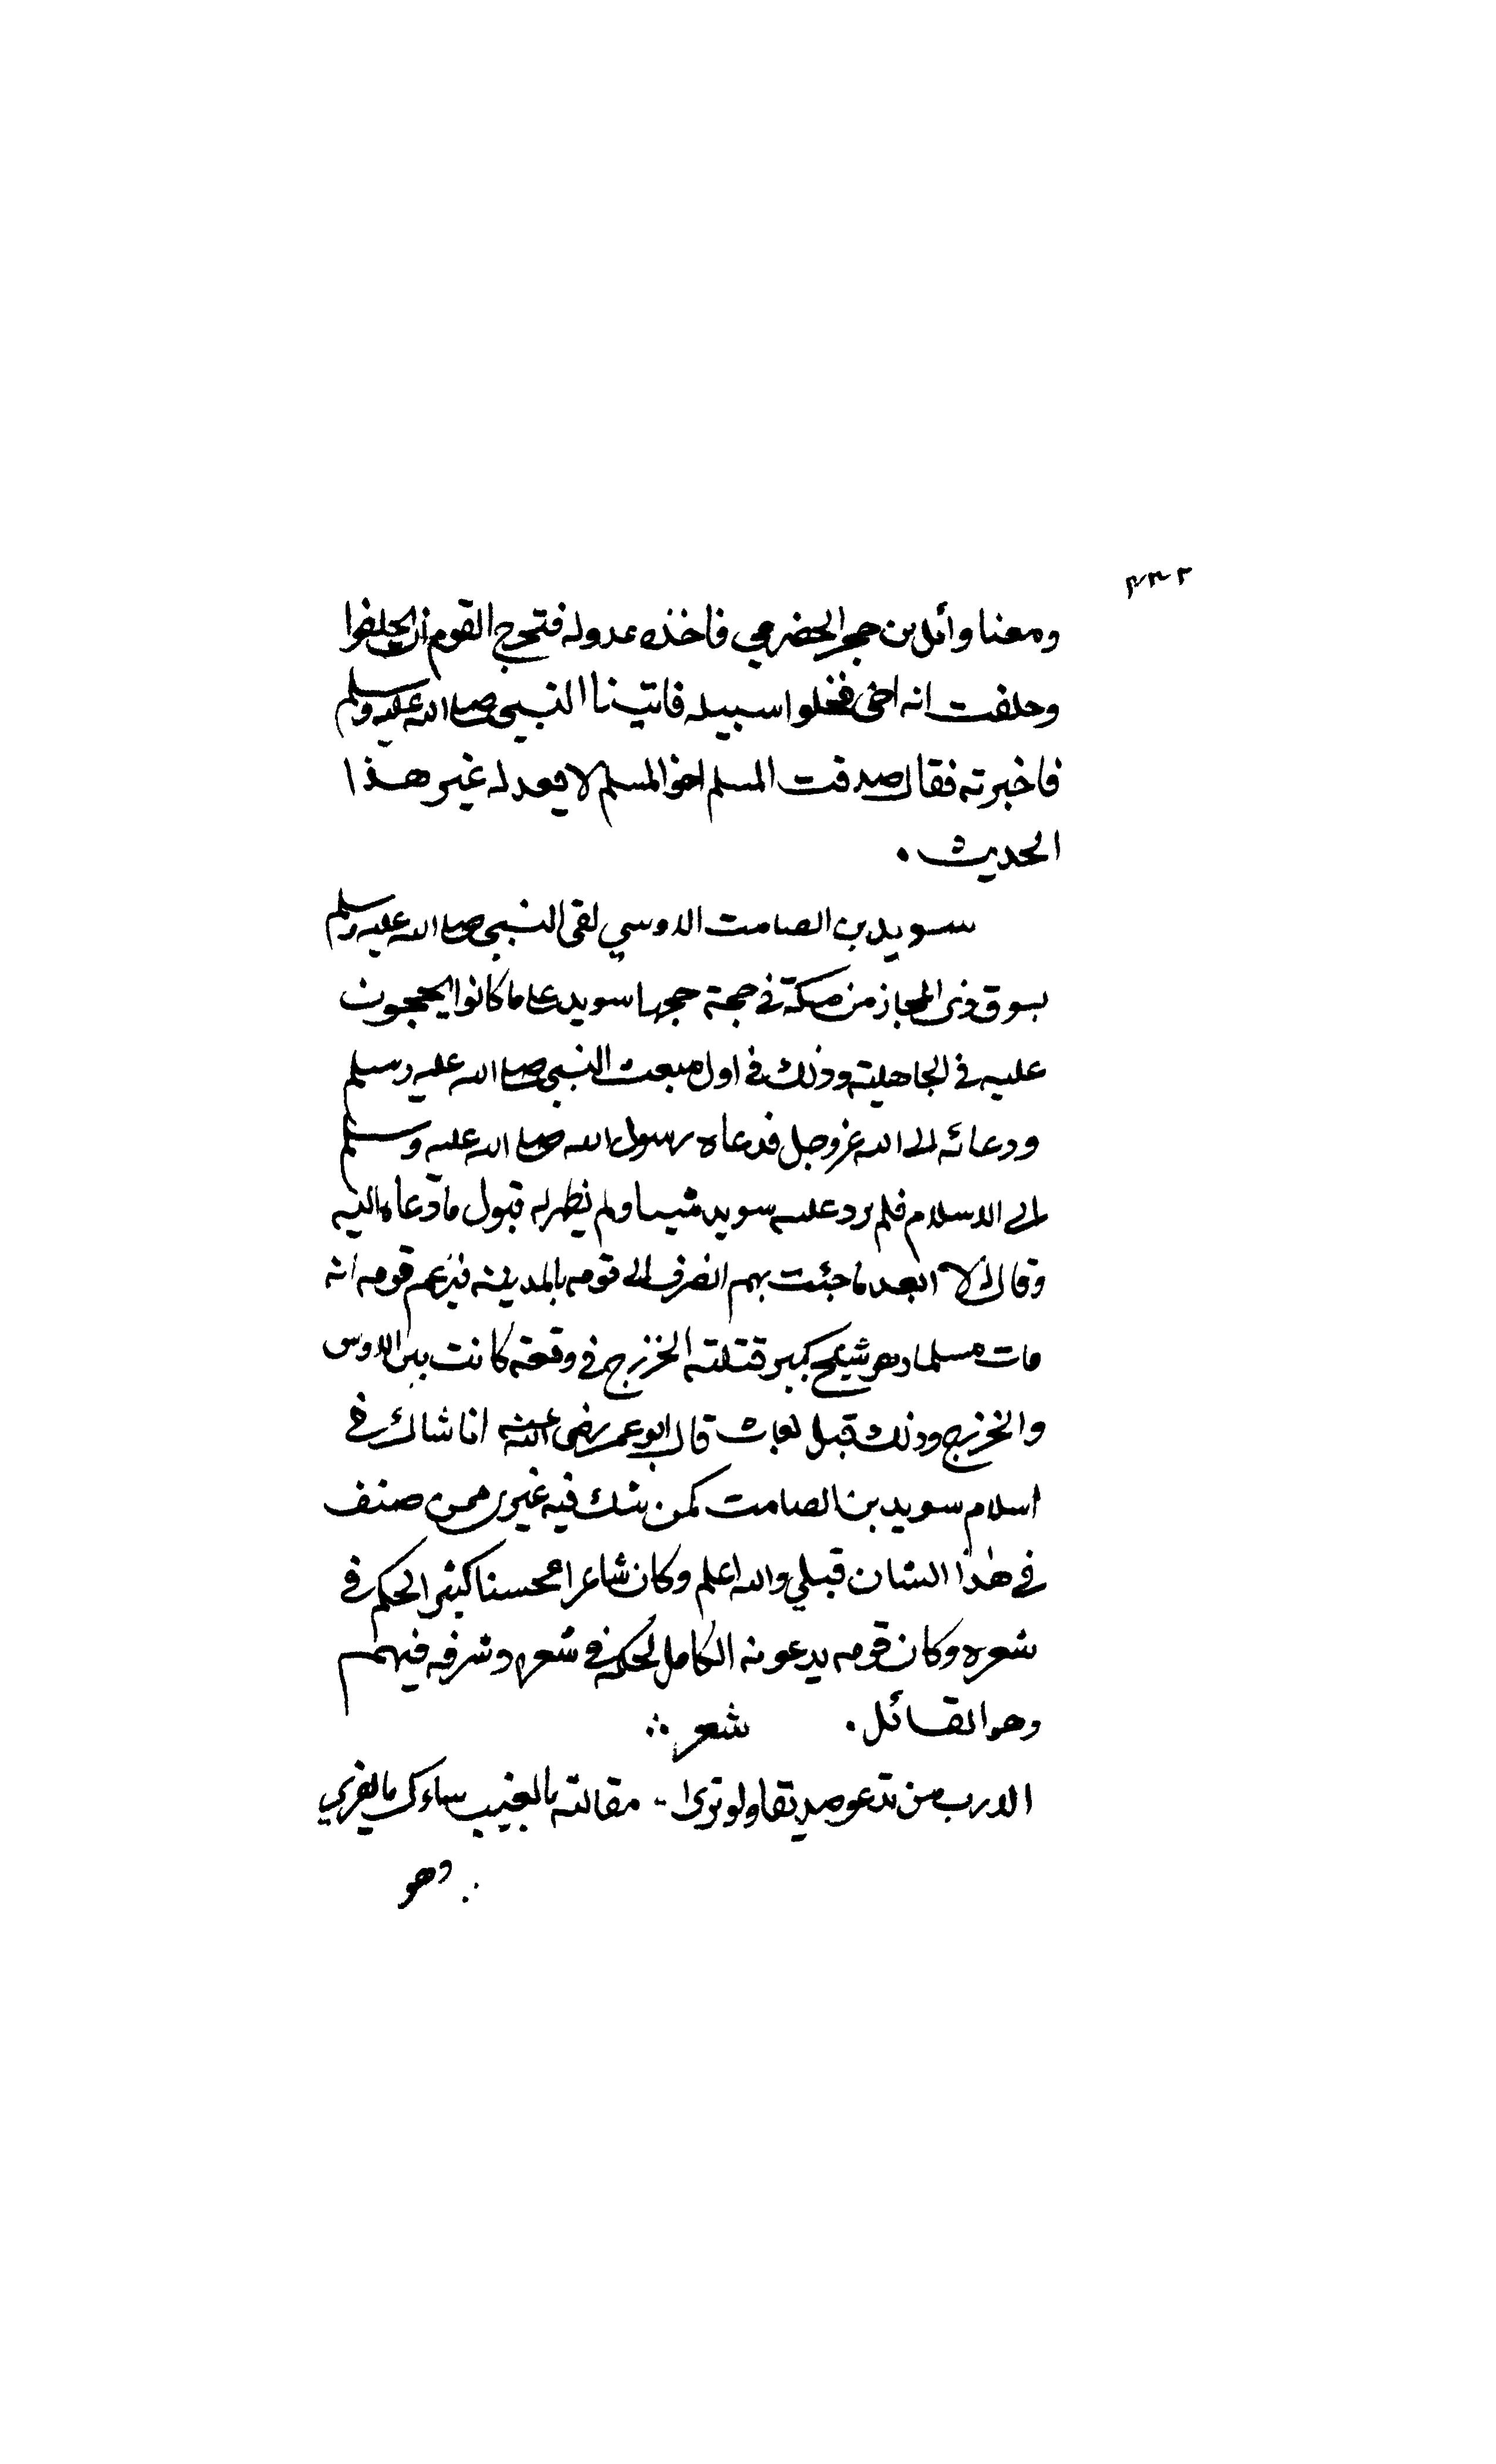 ٤٣٢
ومعنا وائل بن حجر الحضرمي فاخذه عدوله فتحرج القوم ان يحلفوا
وحلفت انه اخى فخلوا سبيله فاتينا النبى صلى الله عليه وسلم
فاخبرته فقال صدقت المسلم اخو المسلم لا يعد له غير هذا
الحديث .
سويد بن الصامت الاوسي لقى النبى صلى الله عليه وسلم
بسوق ذى المجاز من مكة فى حجة حجها سويد على ما كانوا يحجون
عليه فى الجاهلية وذلك فى اول مبعث النبى صلى الله عليه وسلم
ودعائه الى الله عز وجل فدعاه رسول الله صلى الله عليه وسلم
الى الاسلام فلم يرد عليه سويد شيئا ولم يظهر له قبول ما دعاه اليه
وقال لا ابعد ما جئت بهم انصرف الى قومه بالمدينة فيزعم قومه انه
مات مسلما وهو شيخ كبير قتلته الخزرج فى وقعة كانت بين الاوس
والخزرج وذلك قبل بعاث قال ابو عمر رضى الله عنه انا شاك فى
اسلام سويد بن الصامت كمن شك فيه غيرى ممن صنف
فى هذا الشان قبلي والله اعلم وكان شاعرا محسنا كثير الحكم فى
شعره وكان قومه يدعونه الكامل لحكمه فى شعره وشرفه فيهم
وهو القائل . شعر ∴
الا رب من تدعو صديقا ولو ترى .. مقالته بالغيب ساءك ما يفرى
وهو